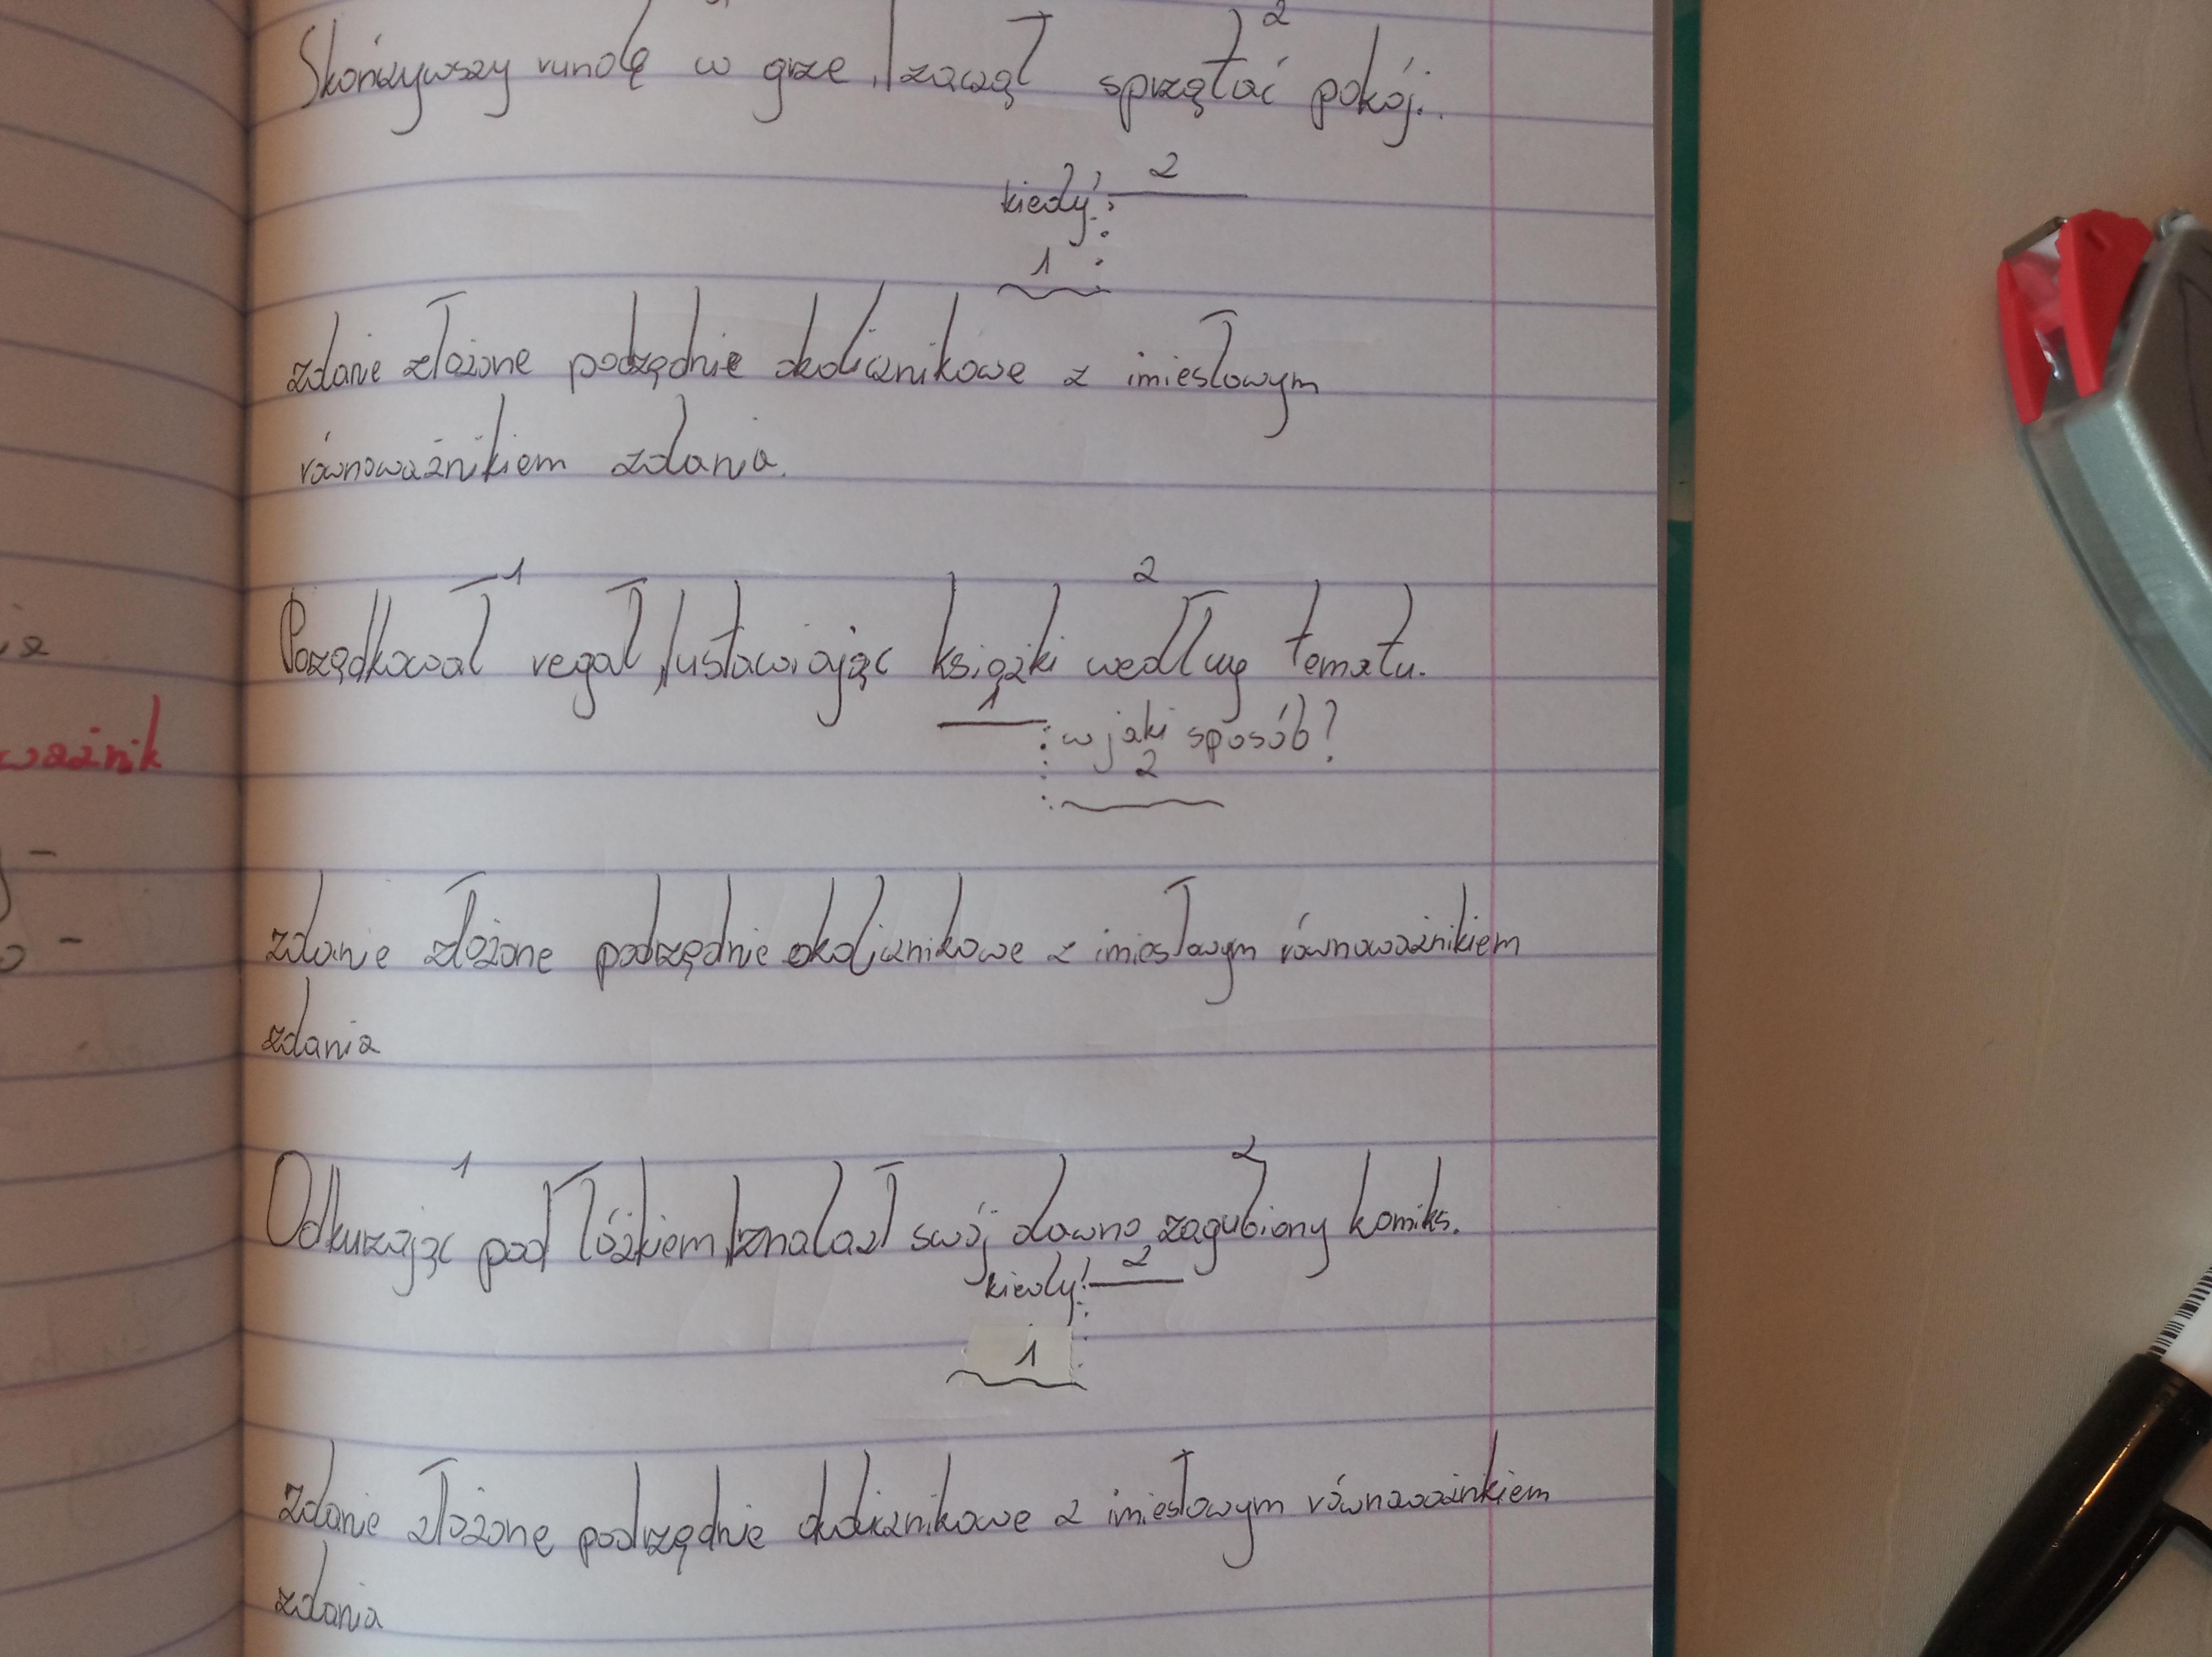 Skończywszy rundę w grze, | zaczął sprzątać pokój.
2
kiedy? 2
1
zdanie złożone podrzędnie okolicznikowe z imiesłowym
równoważnikiem zdania.
1 2
Porządkował regał, | ustawiając książki według tematu.
1
w jaki sposób?
2
zdanie złożone podrzędnie okolicznikowe z imiesłowym równoważnikiem
zdania
1 2
Odkurzając pod łóżkiem, | znalazł swój dawno zagubiony komiks.
kiedy? 2
1
Zdanie złożone podrzędnie okolicznikowe z imiesłowym równoważnikiem
zdania